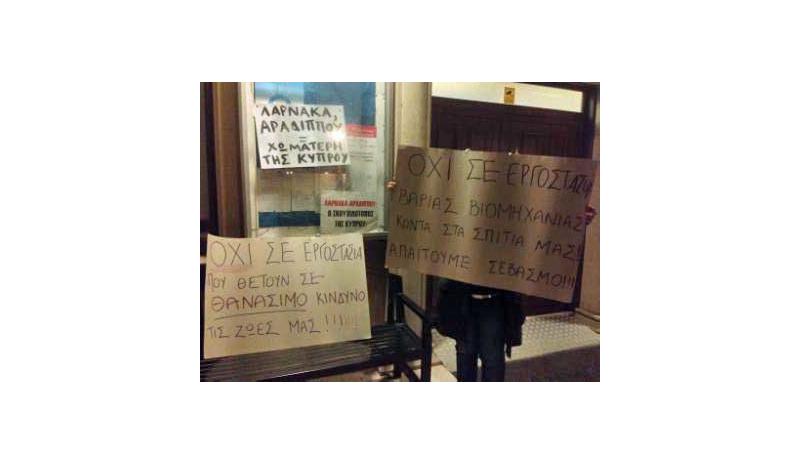 ΛΑΡΝΑΚΑ,
ΑΡΑΔΙΠΠΟΥ
=
ΧΩΜΑΤΕΡΗ
ΤΗΣ ΚΥΠΡΟΥ
ΛΑΡΝΑΚΑ-ΑΡΑΔΙΠΠΟΥ
Ο ΣΚΟΥΠΙΔΟΤΟΠΟΣ
ΤΗΣ ΚΥΠΡΟΥ
ΟΧΙ ΣΕ ΕΡΓΟΣΤΑΣΙΑ
ΠΟΥ ΘΕΤΟΥΝ ΣΕ
ΘΑΝΑΣΙΜΟ ΚΙΝΔΥΝΟ
ΤΙΣ ΖΩΕΣ ΜΑΣ!!!!!!
ΟΧΙ ΣΕ ΕΡΓΟΣΤΑΣΙΑ
ΒΑΡΙΑΣ ΒΙΟΜΗΧΑΝΙΑΣ
ΚΟΝΤΑ ΣΤΑ ΣΠΙΤΙΑ ΜΑΣ!
ΑΠΑΙΤΟΥΜΕ ΣΕΒΑΣΜΟ!!!